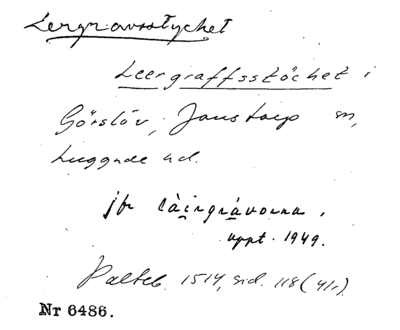 Lergravsstycket
Leergraffsstöchet i
Görslöv, Janstorp sn,
Luggude hd.
jfr làirgrávorna,
uppt. 1949.
Palteb. 1514, sid. 118 (41r).
Nr 6486.